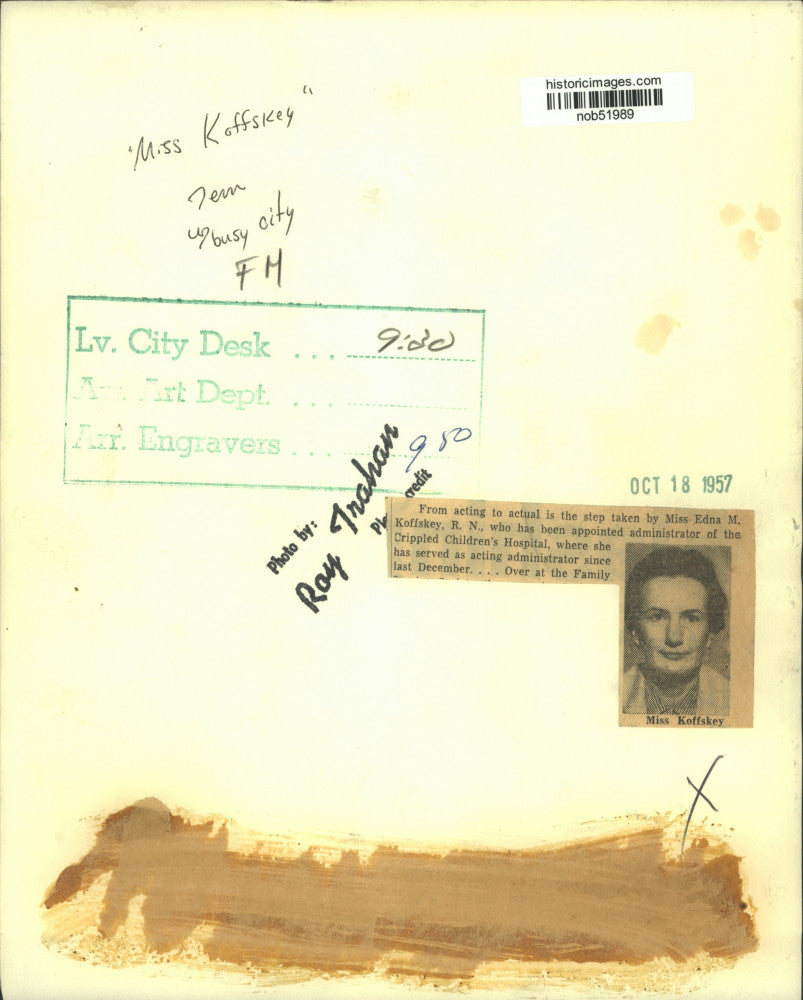 historicimages.com
nob51989
"Miss Koffskey"
busy city
FM
Lv. City Desk ... 9:00
Arr. Art Dept. ...
Arr. Engravers ... 9 50
Photo by:
Ray Trahan
credit
OCT 18 1957
From acting to actual is the step taken by Miss Edna M.
Koffskey, R. N., who has been appointed administrator of the
Crippled Children's Hospital, where she
has served as acting administrator since
last December. . . . Over at the Family
Miss Koffskey
X